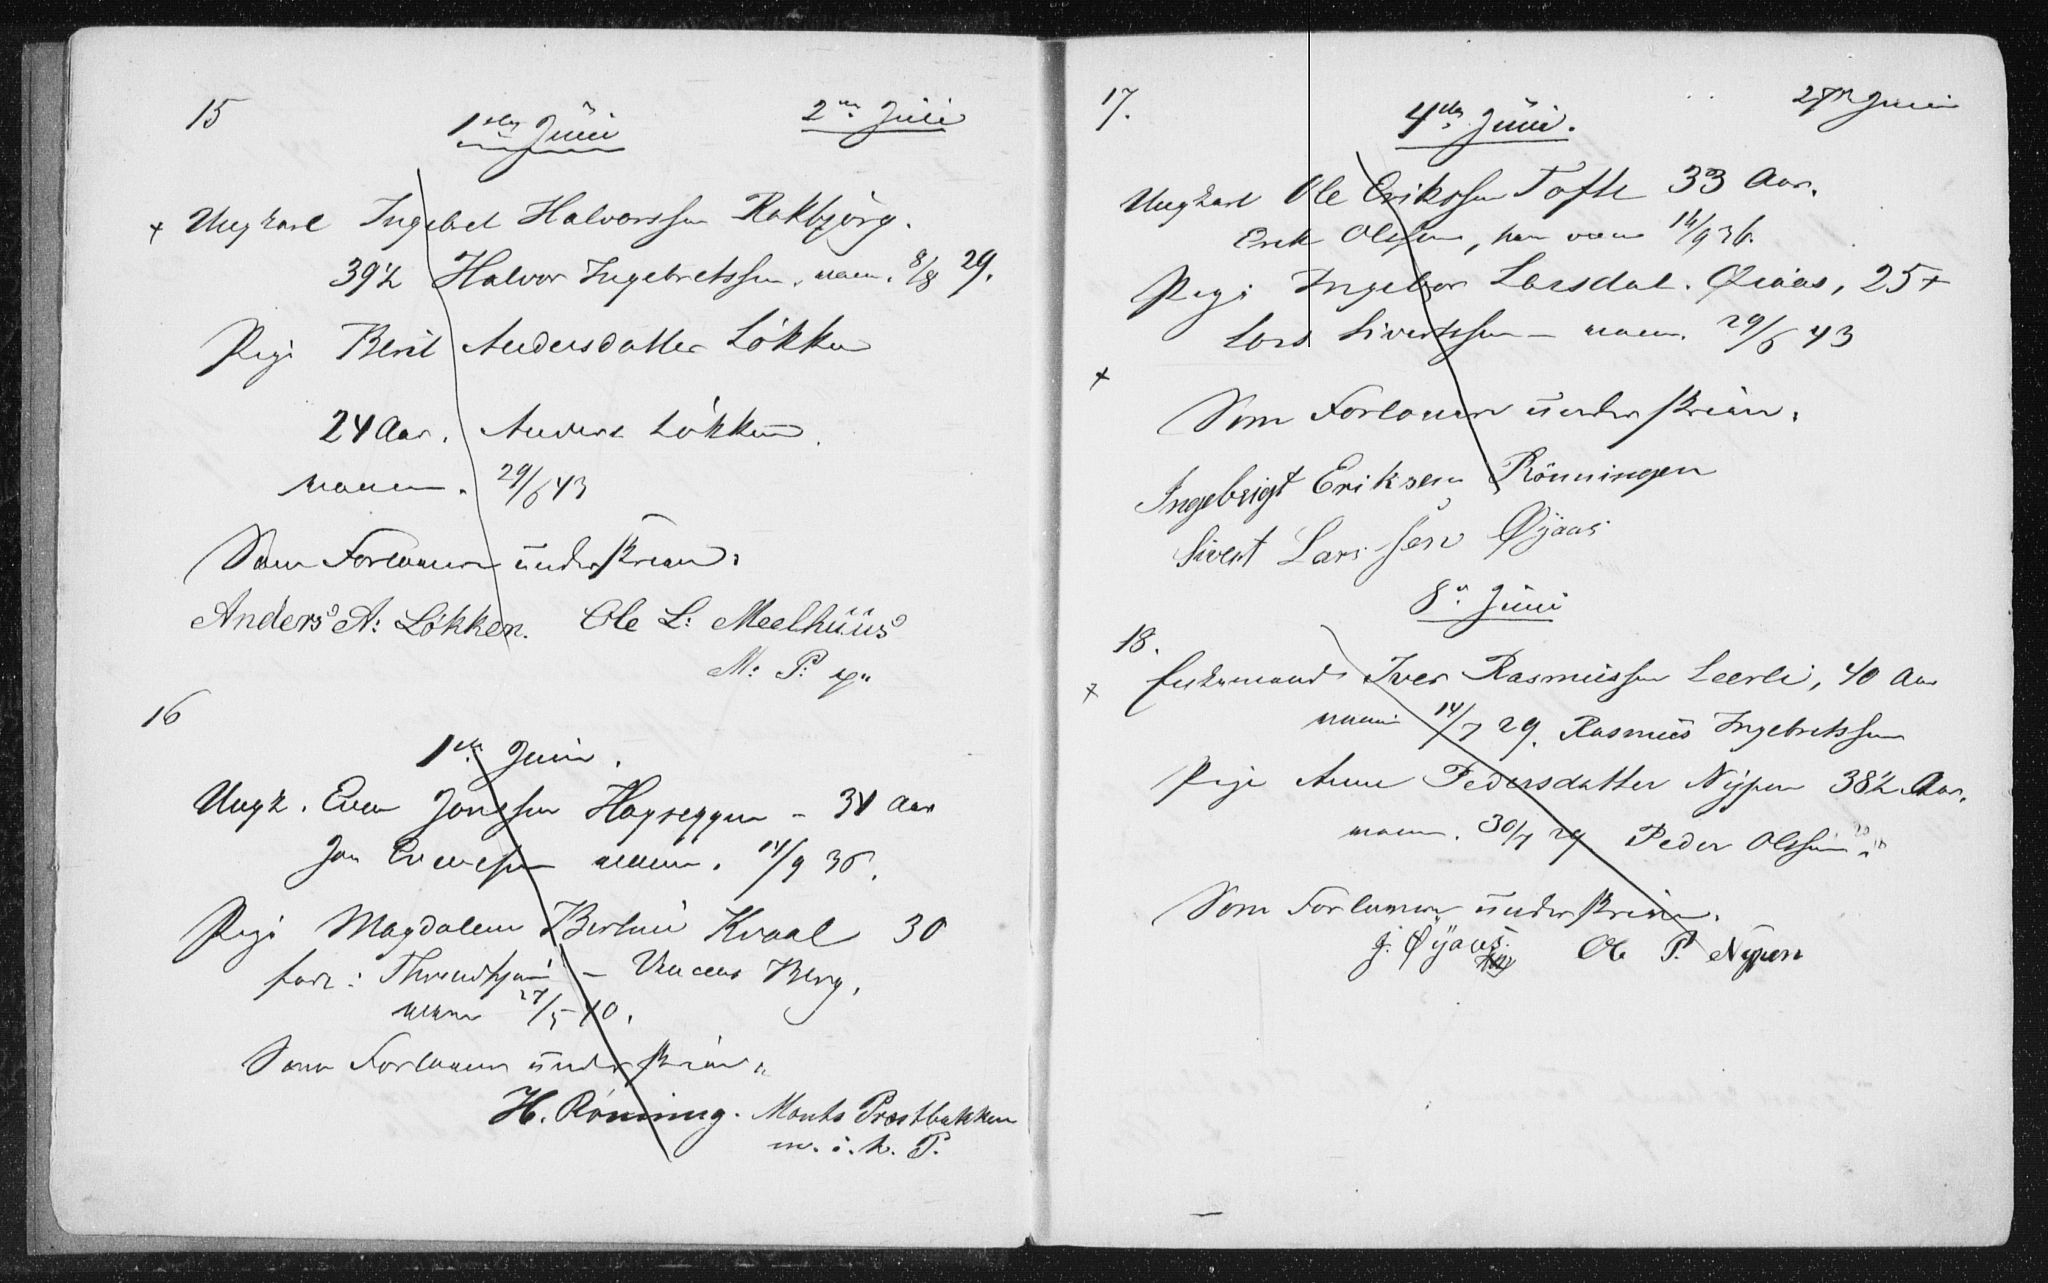 15
1ste Juni 2den Juli
+ Ungkarl Ingebret Halvorssen Rokbjörg.
39½ Halvor Ingebretssen. vacn. 8/8 29.
Pige Berit Andersdatter Løkken
24 Aar. Anders Løkken.
vaccin. 29/6 43
Som Forlovere underskriver:
Anders A: Løkken. Ole L: Meelhuus
M: P. p.
16
1ste Juni.
Ungk. Even Jonssen Hogseggen - 31 Aar
Jon Evensen vaccin. 14/9 36.
Pige Magdalene Berline Kvaal 30
født: Throndhjem - Berg.
vaccin 27/5 40.
Som Forlovere underskriver
H. Rönning. Monts Præstbakken
m. i. h. P.
17. 4de Juni. 27 Juni
Ungkarl Ole Erikssen Tofte 33 Aar.
Erik Olssen, han vacn 16/9 36.
Pige Ingebor Larsdat. Øiaas, 25 +
Lars Sivertssen - vaccn. 29/6 43
+
Som Forlovere underskriver.
Ingebrigt Eriksen Rönningen
Sivert Larssen Øyaas
8de Juni
18.
+ Enkemand Iver Rasmussen Leerli, 40 Aar
vaccin 14/7 29. Rasmus Ingebretssen
Pige Anne Pedersdatter Nypen 38½ Aar.
vaccn. 30/7 29 Peder Olssen
Som Forlovere underskriver.
J. Øyaas. Ole P. Nypen